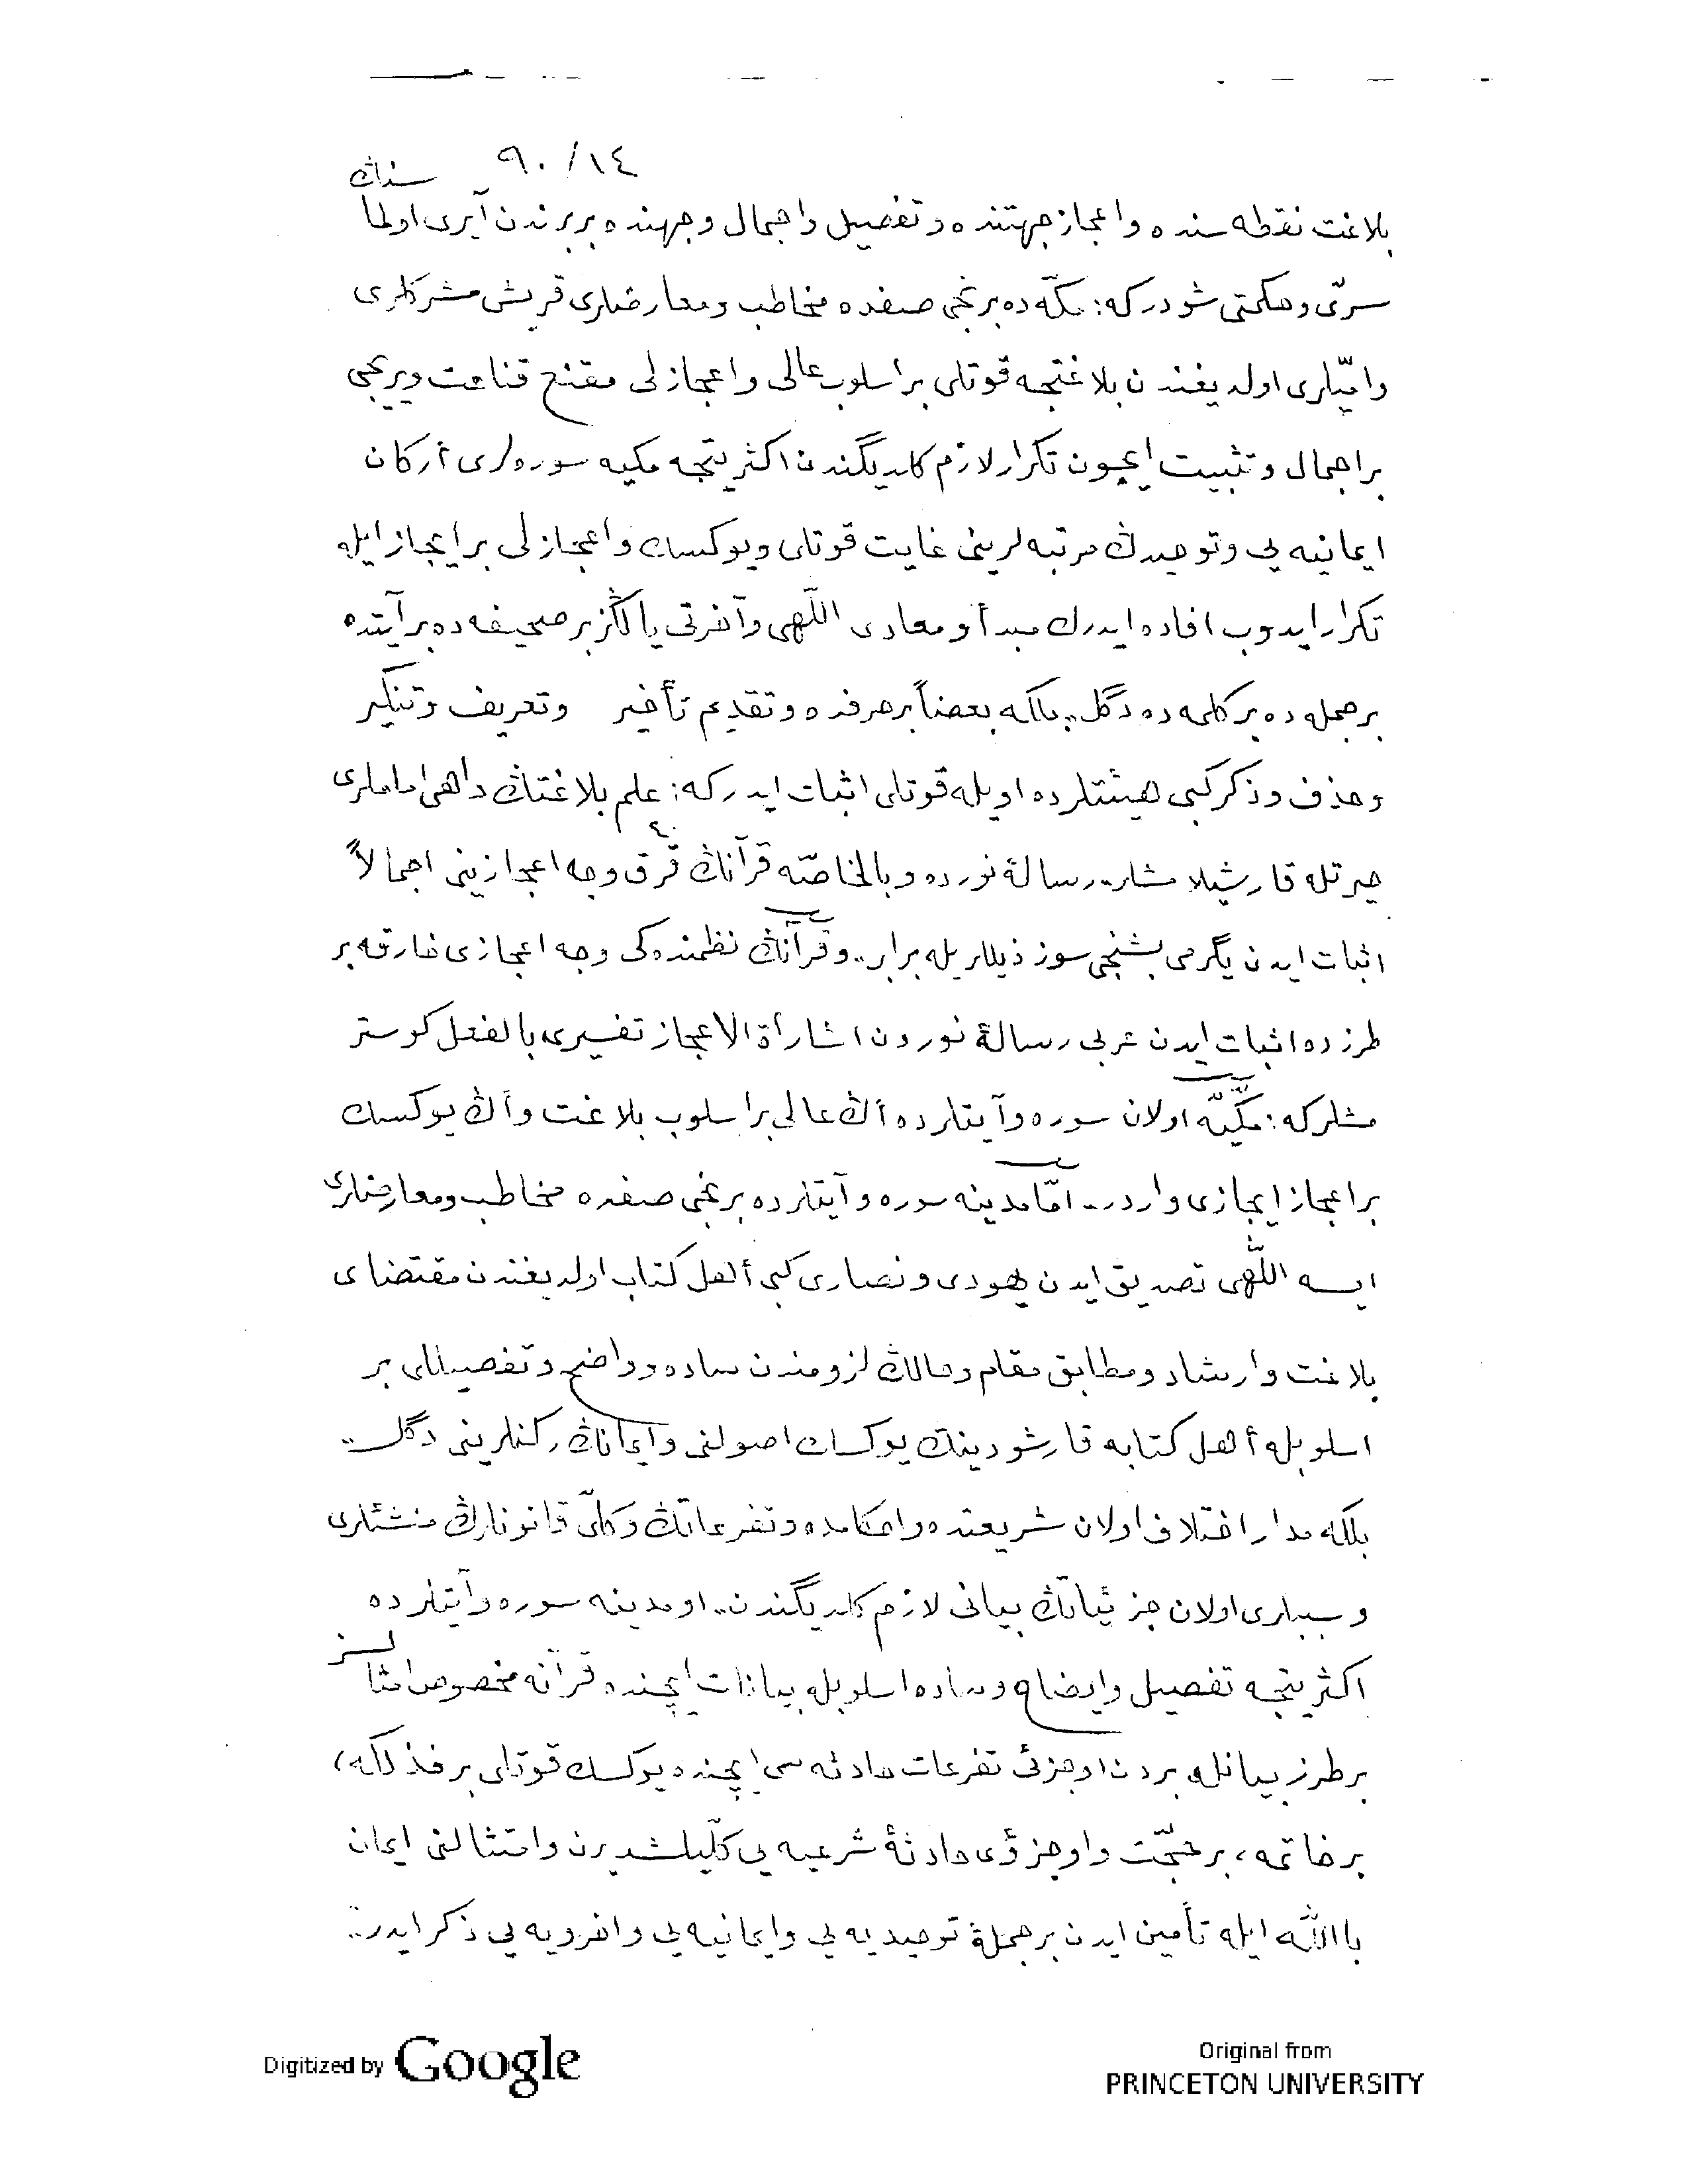 ٩٠/١٤
بلاغت نقطه سنده و اعجاز جهتنده و تفصيل و اجمال وجهنده بربرندن آيرى اولماسنڭ
سرّى و حكمتى شودركه: مكّه ده برنجى صفده مخاطب و معارضلرى قريش مشركلرى
و امّيلرى اولديغندن بلاغتجه قوتلى بر اسلوب عالى و اعجازلى مقنع قناعت ويريجى
بر اجمال و تثبيت ايچون تكرار لازم كلديگندن اكثريتجه مكيه سوره لرى أركان
ايمانيه يى و توحيدڭ مرتبه لرينى غايت قوتلى و يوكسك و اعجازلى بر ايجاز ايله
تكرار ايدوب افاده ايدرك مبدأ و معادى اللّهى و آخرتى يالڭز بر صحيفه ده بر آيتده
بر جمله ده بر كلمه ده دگل.. بلكه بعضاً بر حرفده و تقديم تأخير و تعريف و تنكير
و حذف و ذكر كبى هيئتلرده اويله قوتلى اثبات ايدركه: علم بلاغتڭ داهى اماملرى
حيرتله قارشيلامشلر. رسالۀ نورده و بالخاصّه قرآنڭ قرق ٤٠ وجه اعجازينى اجمالاً
اثبات ايدن يگرمى بشنجى سوز ذيللريله برابر.. و قرآنڭ نظمنده كى وجه اعجازى خارقه بر
طرزده اثبات ايدن عربى رسالۀ نوردن اشارأة الاعجاز تفسيرى بالفعل كوستر
مشلركه: مكّيّه اولان سوره و آيتلرده أڭ عالى بر اسلوب بلاغت و أڭ يوكسك
بر اعجاز ايجازى واردر. امّا مدينه سوره و آيتلرده برنجى صفده مخاطب و معارضلرى
ايسه اللّهى تصديق ايدن يهودى و نصارى كبى أهل كتاب اولديغندن مقتضاى
بلاغت و ارشاد و مطابق مقام و حالڭ لزومندن ساده و واضح و تفصيللى بر
اسلوبله أهل كتابه قارشو دينڭ يوكسك اصولنى و ايمانڭ ركنلرينى دگل..
بلكه مدار اختلاف اولان شريعتده و احكامده و تفرعاتڭ و كلّى قانونلرڭ منشئلرى
و سببلرى اولان جزئياتڭ بيانى لازم كلديگندن.. او مدينه سوره و آيتلرده
اكثريتجه تفصيل و ايضاح و ساده اسلوبله بيانات ايچنده قرآنه مخصوص امثالسز
بر طرز بيانله بردن او جزئى تفرعات حادثه سى ايچنده يوكسك قوتلى بر فذلكه،
بر خاتمه، بر حجّت و او جزؤى حادثۀ شرعيه يى كلّيلشديرن و امتثالنى ايمان
باالله ايله تأمين ايدن بر جملۀ توحيديه يى و ايمانيه يى و اخرويه يى ذكر ايدر..
Digitized by Google
Original from
PRINCETON UNIVERSITY